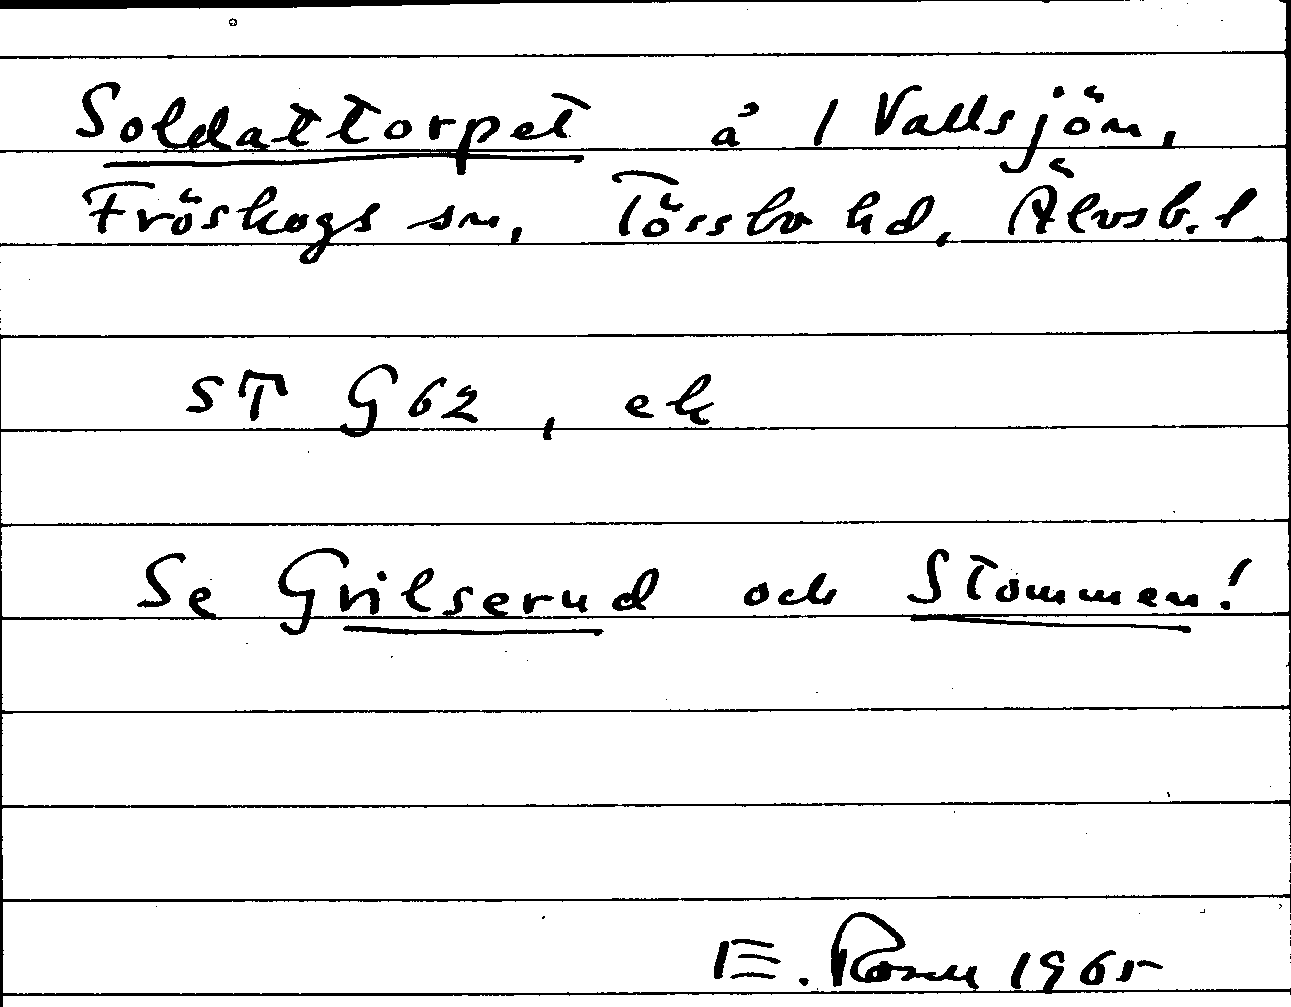 Soldattorpet å 1 Vallsjön,
Fröskogs sn, Tössbo hd, Älvsb. l
ST G62, ek
Se Grilserud och Stommen!
E. Rosell 1965